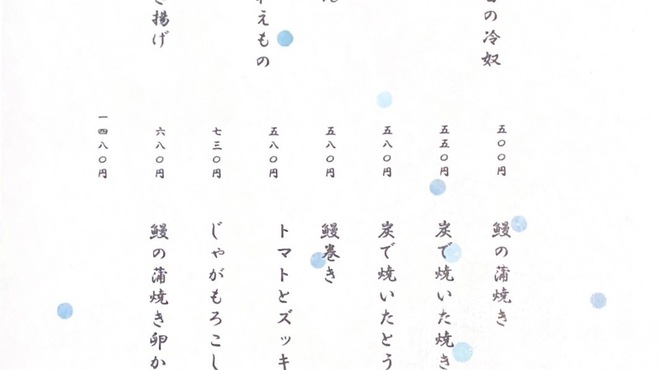 の冷奴
えもの
揚げ
五〇〇円
五五〇円
五八〇円
五八〇円
五八〇円
七三〇円
六八〇円
一四八〇円
鰻の蒲焼き
炭で焼いた焼き
炭で焼いたとう
鰻巻き
トマトとズッキ
じゃがもろこし
鰻の蒲焼き卵か